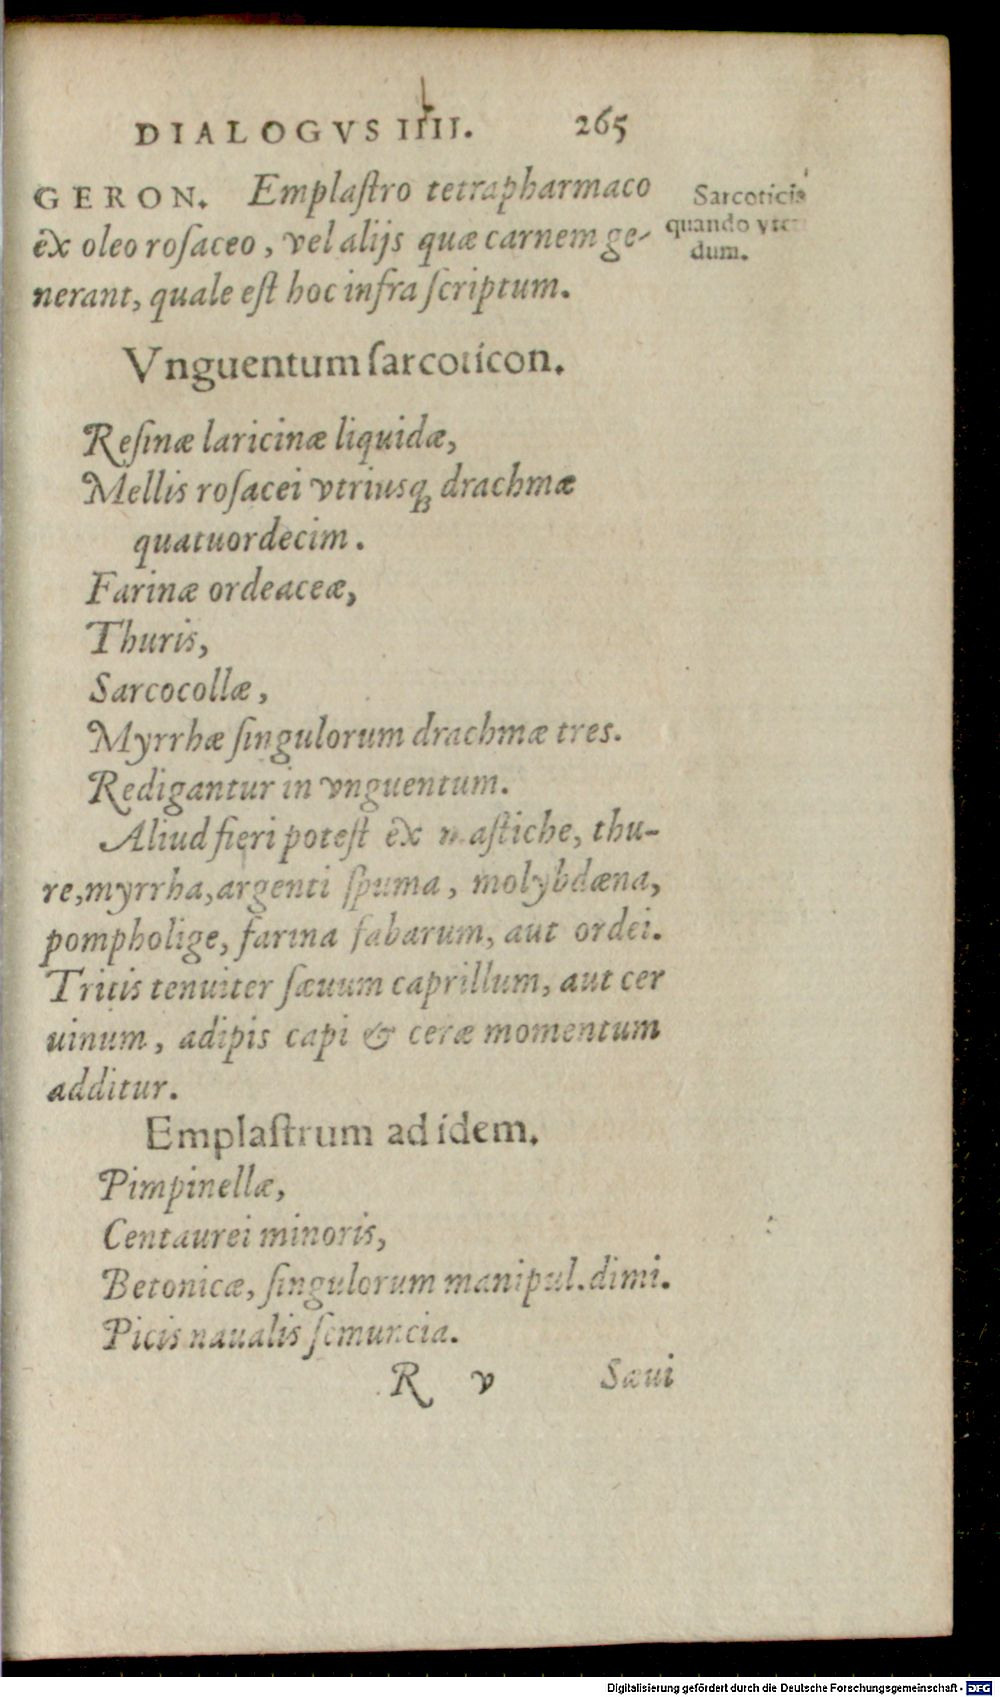 DIALOGVS IIII. 265
GERON. Emplaſtro tetrapharmaco
ex oleo roſaceo, vel alijs quæ carnem ge-
nerant, quale eſt hoc infra ſcriptum.
Sarcoticis
quando
dum.
Vnguentum ſarcoticon.
Reſinæ laricinæ liquidæ,
Mellis roſacei vtriusq; drachmæ
quatuordecim.
Farinæ ordeaceæ,
Thuris,
Sarcocollæ,
Myrrhæ ſingulorum drachmæ tres.
Redigantur in vnguentum.
Aliud fieri poteſt ex maſtiche, thu-
re, myrrha, argenti ſpuma, molybdæna,
pompholige, farina fabarum, aut ordei.
Tritis tenuiter ſæuum caprillum, aut cer
uinum, adipis capi & ceræ momentum
additur.
Emplaſtrum ad idem.
Pimpinellæ,
Centaurei minoris,
Betonicæ, ſingulorum manipul. dimi.
Picis naualis ſemuncia.
R v Sæui
Digitalisierung gefördert durch die Deutsche Forschungsgemeinschaft - DFG